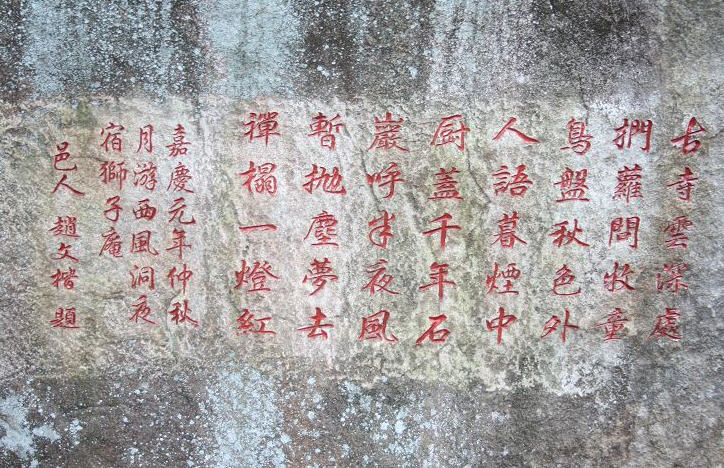 古寺雲深處
捫蘿問牧童
鳥盤秋色外
人語暮煙中
厨蓋千年石
巖呼半夜風
暫拋塵夢去
禪榻一燈紅
嘉慶元年仲秋
月游西風洞夜
宿獅子庵
邑人趙文楷題